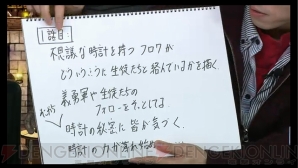 1話目
不思議な時計を持つフロワが
どういうふうに生徒たちと絡んでいるかを描く。
義勇軍や生徒たちの
フォローをそっとしてる。
時計の秘密に皆が気づく。
時計の力が薄れ始め
DENGEKIONLINE